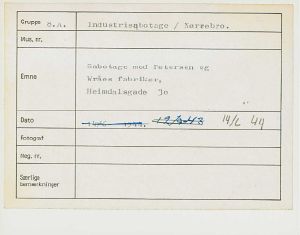 Gruppe 8.A. Industrisabotage / Nørrebro.
Mus. nr.
Emne
Sabotage mod Petersen og
Wraas fabriker,
Heimdalsgade 3o
Dato 14/6 44
Fotograf
Neg. nr.
Særlige
bemærkninger